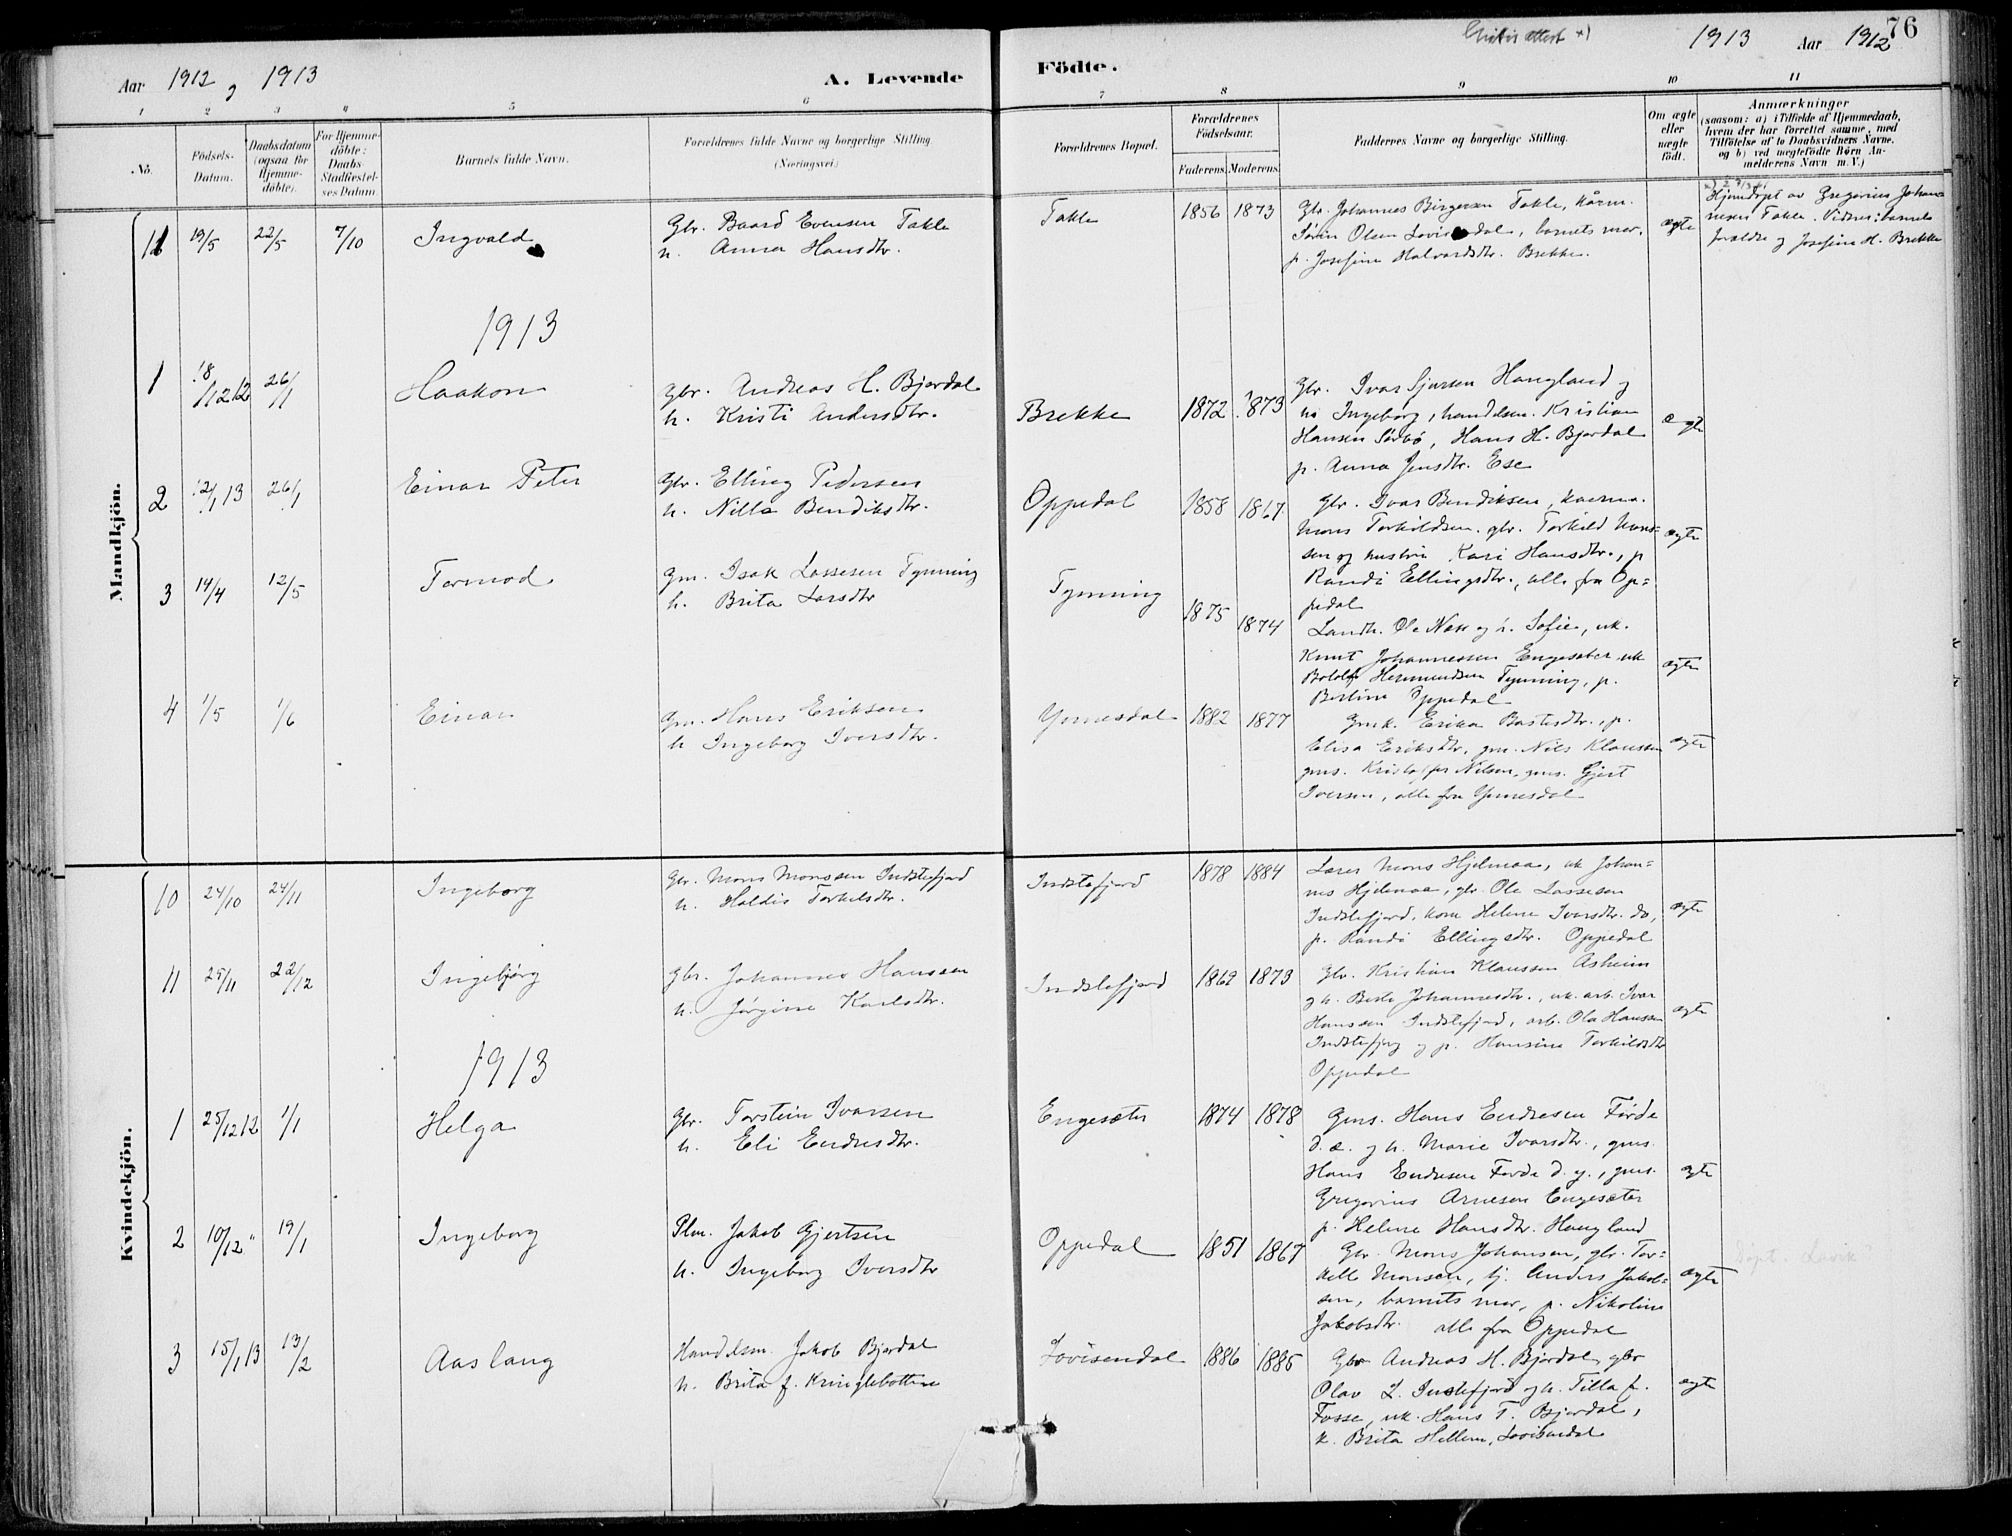 Aar 1912 og 1913
A. Levende
Födte.
1913 Aar 1912
76
1 2 3 4 5 6 7 8 9 10 11
No.
Födsels-Datum.
Daabsdatum (ogsaa for Hjemme-døbte).
For Hjemme-döbte: Daabs Stadfæstel-ses Datum
Barnets fulde Navn.
Forældrenes fulde Navne og borgerlige Stilling (Næringsvei)
Forældrenes Bopæl.
Forældrenes Födselsaar.
Faderens. Moderens.
Faddernes Navne og borgerlige Stilling.
Om ægte eller uægte födt.
Anmærkninger
(saasom: a) i Tilfælde af Hjemmedaab,
hvem der har forrettet samme, med
Tilföielse af to Daabsvidners Navne,
og b) ved uægtefödte Börn An-
melderens Navn m. V.)
Mandkjön.
11 19/5 22/5 7/10 Ingvald
Gbr. Baard Evensen Takle
h. Anna Hansdtr.
Takle 1856 1873
Gbr. Johannes Birgersen Takle,
Sören Olsen, barnets mor,
p. Josefine Halvardsdtr. Brekke.
ægte
Hjemdøpt av Gregorius Johan-
nesen Takle. Vidner: barnets
forældre og Josefine H. Brekke
1913
1 18/12 12 26/1 Haakon
Gbr. Andreas H. Bjordal
h. Kristi Andersdtr.
Brekke 1872 1873
Gbr. Ivar Sjursen Haugland og
h. Ingeborg, handelsm. Kristian
Hansen, Hans H. Bjordal
p. Anna Jensdtr. Ese
ægte
2 12/1 13 26/1 Einar Peter
Gbr. Elling Pedersen
h. Nille Bendiksdtr.
Oppedal 1858 1867
Gbr. Ivar Bendiksen,
Mons Torkildsen. gbr. Torkild Mons-
sen og hustru Kari Hansdtr., p
Randi Ellingsdtr., alle fra Op-
pedal
ægte
3 14/4 12/5 Tormod
Gm. Isak Lassesen Tynning
h. Brita Larsdtr
Tynning 1875 1874
Landh. Ole Ness og h. Sofie, uk.
Knut Johannessen Engesæter uk
Bottolf Hermundsen Tynning, p.
Bertine Oppedal
ægte
4 1/5 1/6 Einar
Gm. Hans Eriksen
h Ingeborg Iversdtr.
Ynnesdal 1882 1877
Gmk. Erika Bastesdtr., p.
Elisa Eriksdtr, gm. Nils Klaussen
gms. Kristoffer Nilsen, gms. Gjert
Iversen, alle fra Ynnesdal
ægte
Kvindekjön.
10 24/10 24/11 Ingeborg
Gbr. Mons Monssen Indstefjord
h. Haldis Torkelsdtr.
Indstefjord 1878 1884
Lærer Mons Hjelmaa, uk Johan-
nes Hjelmaa, gbr Ole Lassesen
Indstefjord, kone Helene Ivarsdtr. do,
p. Randi Ellingsdtr. Oppedal
ægte
11 25/11 22/12 Ingebjørg
Gbr. Johannes Hanssen
h. Jørgine Karlsdtr.
Indstefjord 1862 1873
Gbr. Kristian Klaussen Asheim
og h. Berte Johannesdtr., uk. arb. Ivar
Hanssen Indstefjord, arb. Ola Hansen
Indstefjord og p. Hansine Torkildsdtr
Oppedal
ægte
1913
1 25/12 12 1/1 Helga
Gbr. Torstein Ivarsen
h. Eli Endresdtr.
Engesæter 1874 1878
Gms. Hans Endresen Førde
d.æ. og h. Marie Ivarsdtr., gms.
Hans Endresen Førde d.y., gms.
Gregorius Arnesen Engesæter
p. Helene Hansdtr. Haugland
ægte
2 10/12 " 19/1 Ingeborg
Plm. Jakob Gjertsen
h. Ingeborg Iversdtr
Oppedal 1851 1867
Gbr. Mons Johansen, gbr. Tor-
kell Monsen, tj. Anders Jakob-
sen, barnets mor, p. Nikoline
Jakobsdtr. alle fra Oppedal
ægte
Døpt i Lavik?
3 15/1 13 13/2 Aaslaug
Handelsm. Jakob Bjordal
h. Brita f. Kringlebotten
Lovisendal 1886 1885
Gbr Andreas H. Bjordal, gbr
Olav L. Instefjord og h. Tilla f.
Fosse, uk. Hans T. Bjordal,
k. Brita Hellem, Lovisendal
ægte